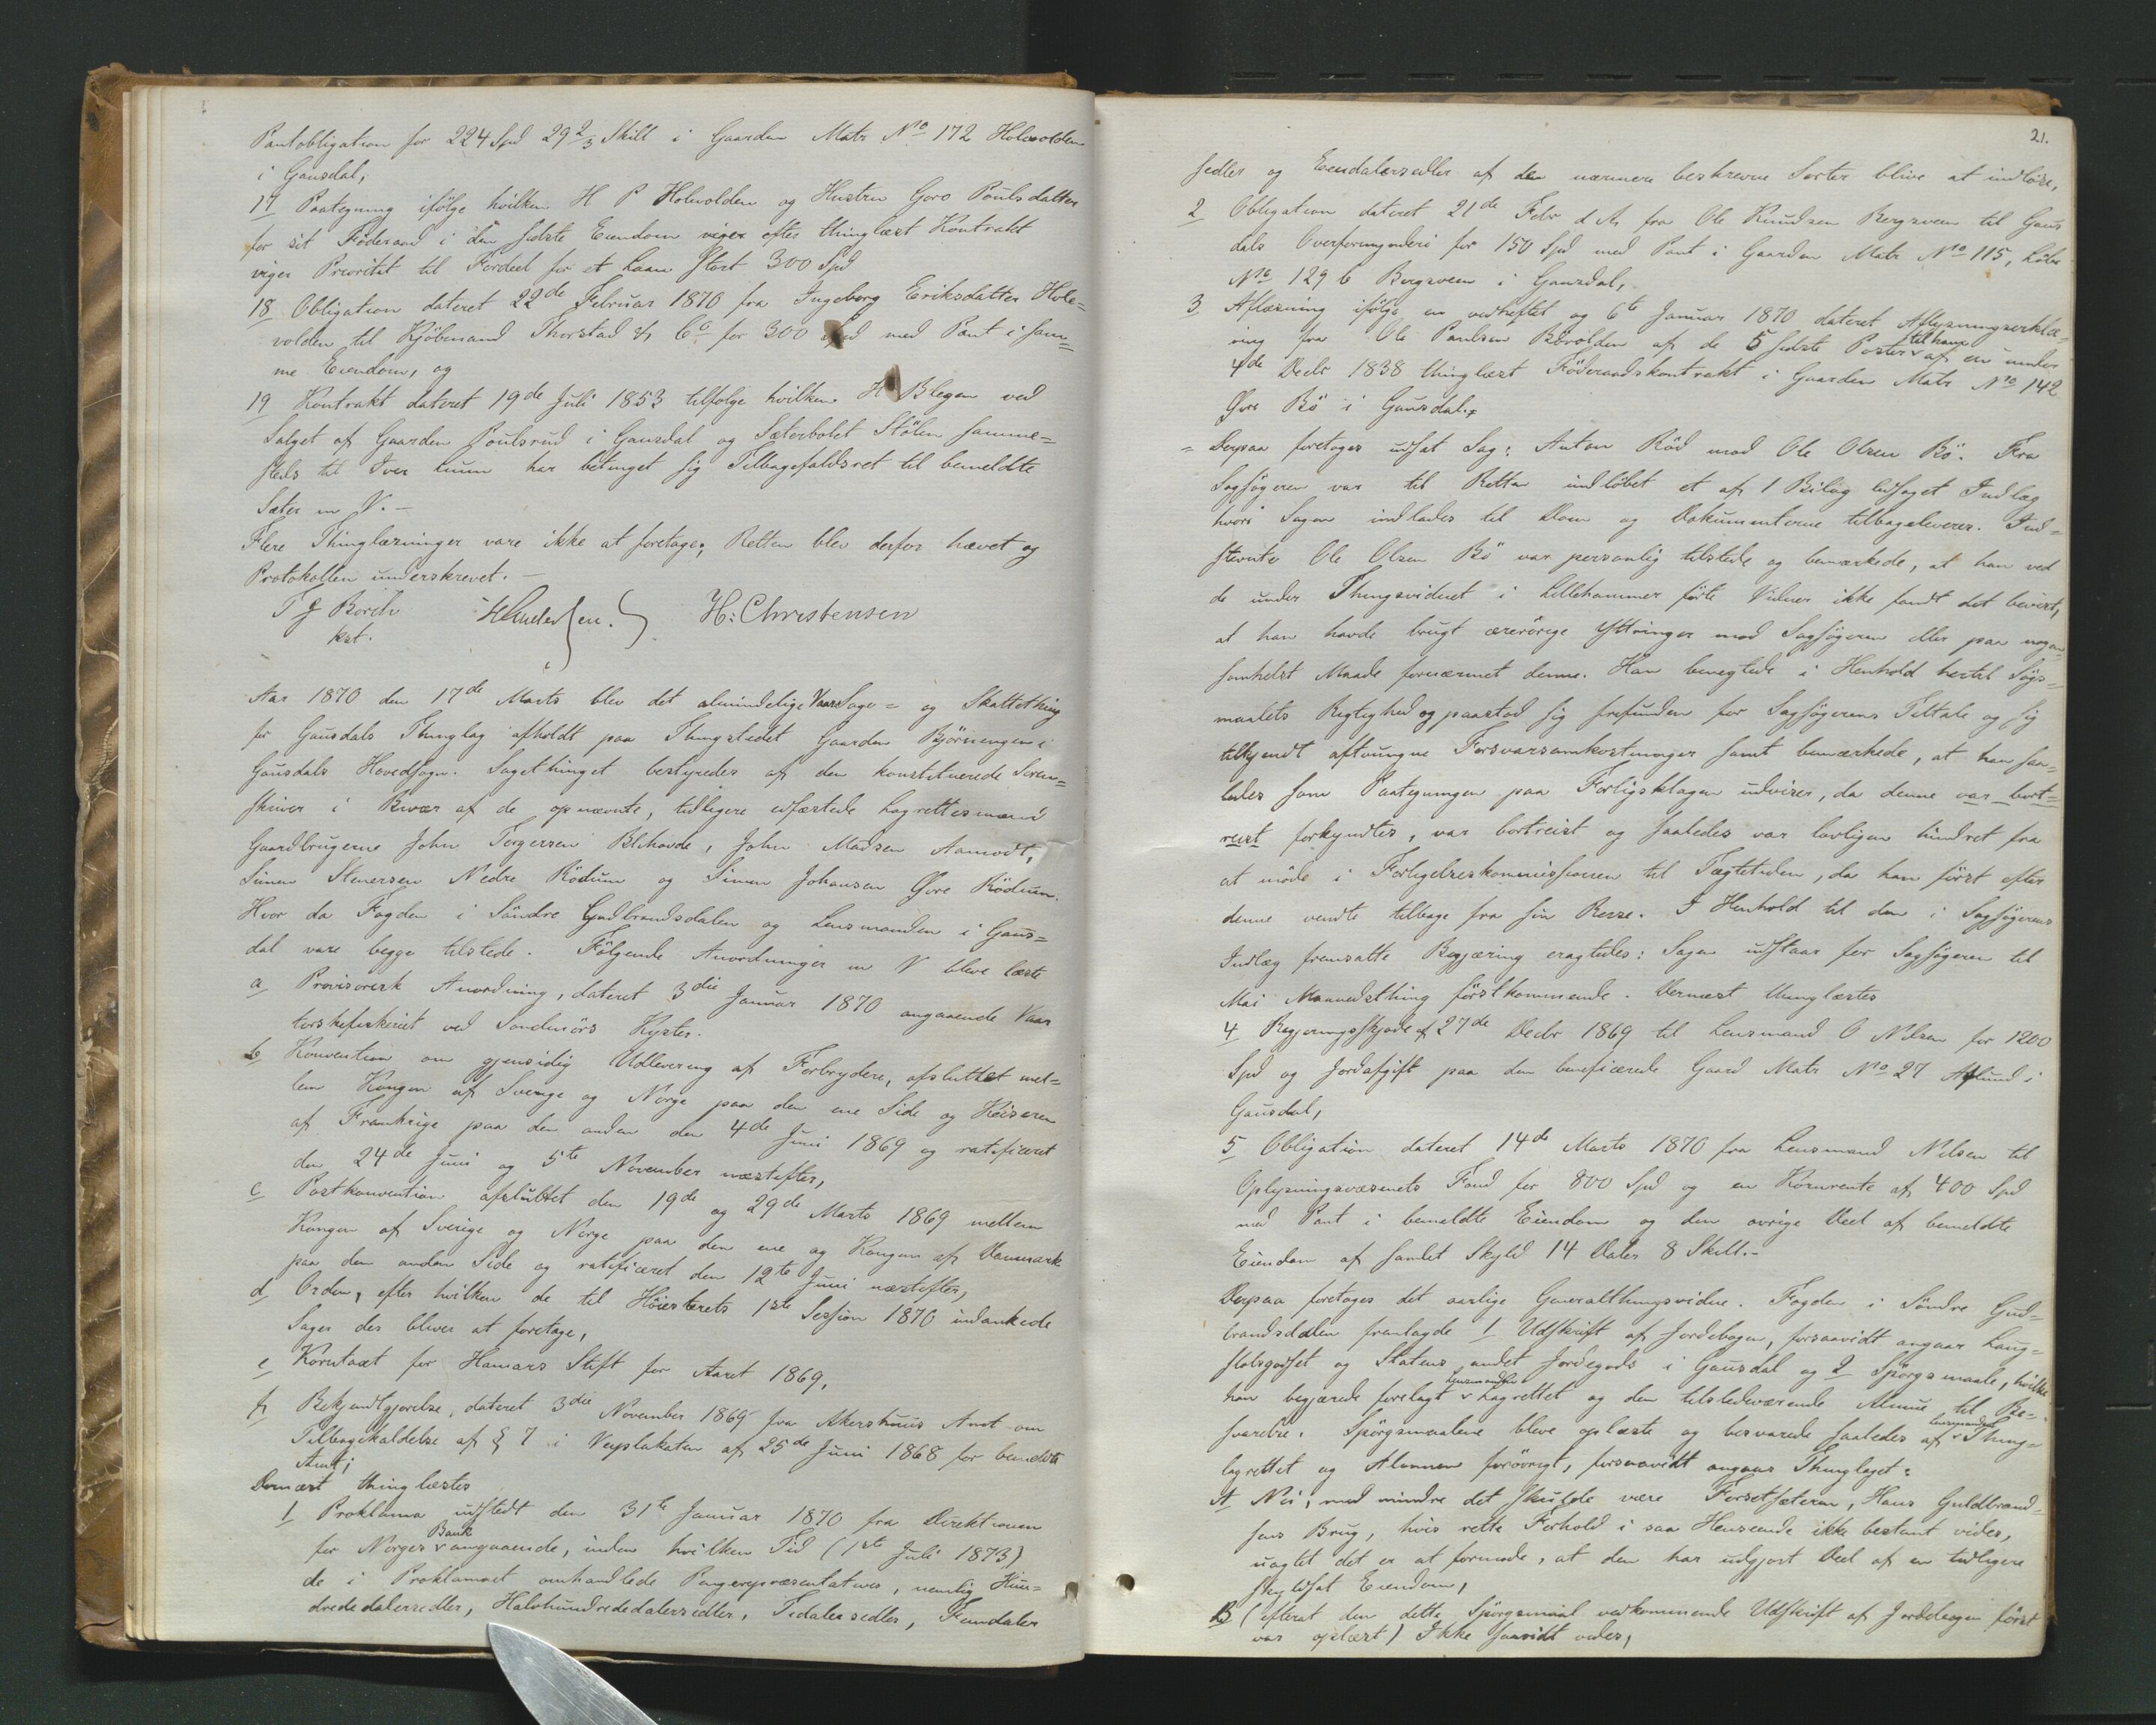 Pantobligation for 224 Spd 29 2/3 Skill i Gaarden Matr No 172 Holevolden
i Gausdal,
17 Paategning ifölge hvilken H P Holevolden og Hustru Goro Poulsdatter
for sit Föderaad i den sidste Eiendom viger efter thinglæst Kontrakt
viger Prioritet til Fordeel for et Laan stort 300 Spd
18 Obligation dateret 22de Februar 1870 fra Ingeborg Eriksdatter Hole=
volden til Kjöbmand Thorstad & Co for 300 Spd med Pant i sam=
me Eiendom, og
19 Kontrakt dateret 19de Juli 1853 tilfölge hvilken H Blegen ved
Salget af Gaarden Poulsrud i Gausdal og Sæterbolet Stölen samme=
steds til Iver Luun har betinget sig Tilbagefaldsret til bemeldte
Sæter m V. –
Flere Thinglæsninger vare ikke at foretage, Retten blev derfor hævet og
Protokollen underskrevet. –
T J Borch
kst.
H: Christensen
Aar 1870 den 17de Marts blev det almindelige Vaar Sage= og Skattething
for Gausdals Thinglag afholdt paa Thingstedet Gaarden Björningen i
Gausdals Hovedsogn. Sagethinget bestyredes af den konstituerede Soren=
skriver i Bivær af de opnævnte, tidligere edfæstede Lagrettesmænd
Gaardbrugerne John Torgersen Blihovde, John Madsen Aamodt,
Simen Stenersen Nedre Rödum og Simen Johansen Øvre Rödum.
Hvor da Fogden i Söndre Gudbrandsdalen og Lensmanden i Gaus=
dal vare begge tilstede. Fölgende Anordninger m V bleve læste
a Provisorisk Anordning, dateret 3die Januar 1870 angaaende Vaar
torskefiskeriet ved Söndmörs Kyster.
b Konvention om gjensidig Udlevering af Forbrydere, afsluttet mel=
lem Kongen af Sverige og Norge paa den ene Side og Keiseren
af Frankrige paa den anden den 4de Juni 1869 og ratificeret
den 24de Juni og 5te November næstefter,
c Postkonvention afsluttet den 19de og 29de Marts 1869 mellem
Kongen af Sverige og Norge paa den ene og Kongen af Danmark
paa den anden Side og ratificeret den 12te Juni næstefter,
d Orden, efter hvilken de til Höiesterets 1ste Session 1870 indankede
Sager der bliver at foretage,
e Korntaxt for Hamars Stift for Aaret 1869,
f Bekjendtgjörelse, dateret 3die November 1869 fra Akershuus Amt om
Tilbagekaldelse af § 7 i Veiplakaten af 25de Juni 1868 for bemeldte
Amt;
Dernæst thinglæstes
1 Proklama udstedt den 31te Januar 1870 fra Direktionen
for Norges Bank angaaende, inden hvilken Tid (1ste Juli 1873)
de i Proklamaet omhandlede Pengerepræsentativer, nemlig Hun=
drededalersedler, Halvhundrededalersedler, Tidalersedler, Femdaler
21.
sedler og Eendalersedler af den nærmere beskrevne Sorter blive at indlöse,
2 Obligation dateret 21de Febr d A. fra Ole Knudsen Bergsveen til Gaus
dals Overformynderi for 150 Spd med Pant i Gaarden Matr No 115, Löbe
No 129 b Bergsveen i Gausdal,
3 Aflæsning ifölge en vedheftet og 6te Januar 1870 dateret Aflysningserklæ=
ring fra Ole Paulsen Bövolden af de 5 sidste Poster til ham af en under
4de Decbr 1838 thinglæst Föderaadskontrakt i Gaarden Matr No 142
Øvre Bö i Gausdal.
= Derpaa foretoges udsat Sag: Anton Röd mod Ole Olsen Bö. Fra
Sagsögeren var til Retten indlöbet et af 1 Bilag ledsaget Indlæg
hvori Sagen indlades til Dom og Dokumenterne tilbageleveres. Ind=
stevnte Ole Olsen Bö var personlig tilstede og bemærkede, at han ved
de under Thingsvidnet i Lillehammer förte Vidner ikke fandt det bevist,
at han havde brugt ærerörige Yttringer mod Sagsögeren eller paa nogen=
somhelst Maade fornærmet denne. Han benegtede i Henhold hertil Sögs=
maalets Rigtighed og paastod sig frifunden for Sagsögerens Tiltale og sig
tilkjendt aftvungne Forsvarsomkostninger samt bemærkede, at han saa=
ledes som Paategningen paa Forligsklagen udviser, da denne var bort=
reist forkyndtes, var bortreist og saaledes var lovligen hindret fra
at möde i Forligelseskommissionen til Tægtetiden, da han först efter
denne vendte tilbage fra sin Reise. I Henhold til den i Sagsögerens
Indlæg fremsatte Begjæring eragtedes: Sagen udstaar for Sagsögeren til
Mai Maanedsthing förstkommende. Dernæst thinglæstes
4 Regjeringsskjöde af 27de Decbr 1869 til Lensmand O Nilsen for 1200
Spd og Jordafgift paa den beneficerede Gaard Matr No 27 Aslund i
Gausdal,
5 Obligation dateret 14de Marts 1870 fra Lensmand Nilsen til
Oplysningsvæsenets Fond for 800 Spd og en Kornrente af 400 Spd
med Pant i bemeldte Eiendom og den övrige Deel af bemeldte
Eiendom af samlet Skyld 14 Daler 8 Skill. –
Derpaa foretoges det aarlige Generalthingsvidne. Fogden i Söndre Gud=
brandsdalen fremlagde 1 Udskrift af Jordebogen, forsaavidt angaar Laug=
stolsgodset og Statens andet Jordegods i Gausdal og 2 Spörgsmaale, hvilke
han begjærede forelagt Lensmanden Lagrettet og den tilstedeværende Almue til Be=
svarelse. Spörgsmaalene bleve oplæste og besvarede saaledes af Lensmanden Thing=
lagrettet og Almuen forövrigt, forsaavidt angaar Thinglaget:
A Nei, med mindre det skulde være Forsetsæteren, Hans Guldbrand=
sens Brug, hvis rette Forhold i saa Henseende ikke bestemt vides,
uagtet det er at formode, at den har udgjort Deel af en tidligere
skyldsat Eiendom,
B (efterat den dette Spörgsmaal vedkommende Udskrift af Jordebogen först
var oplæst) Ikke saavidt vides,